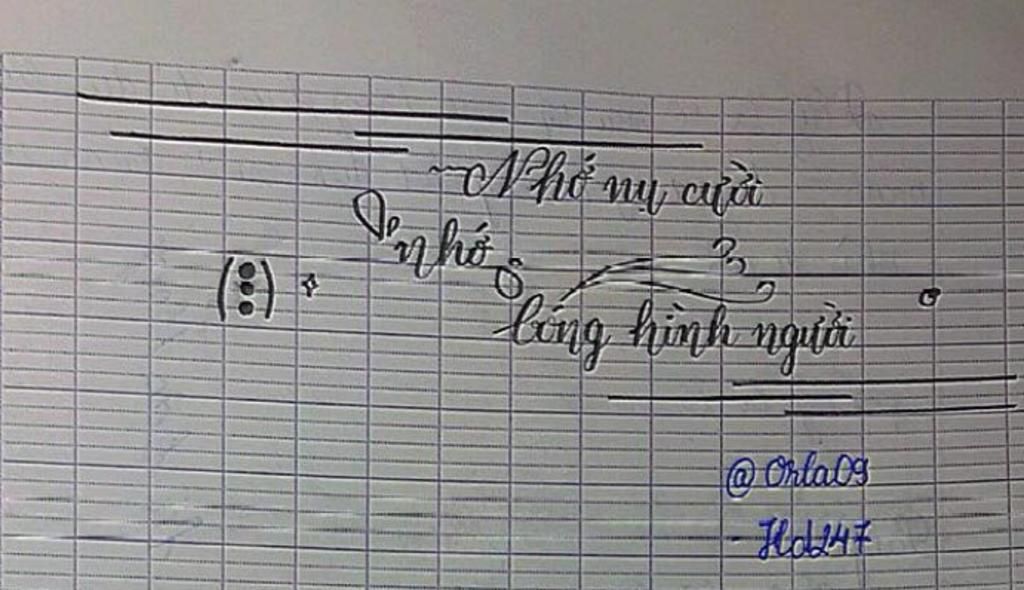 Nhớ nụ cười
nhớ
bóng hình người
@Orla09
- Hd247